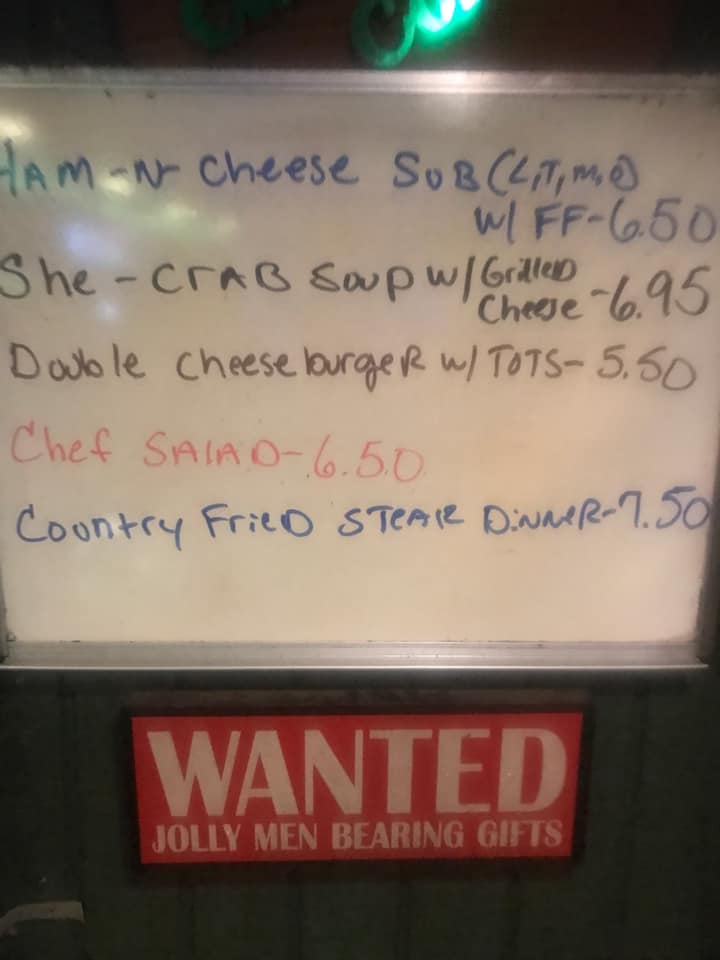 HAM-N-Cheese SUB (L,T,M,O)
W/ FF-6.50
She-CRAB Soup W/ Grilled
Cheese -6.95
Double cheeseburgeR W/ TOTS- 5.50
Chef SALAD-6.50
Country FrieD STEAK DiNNeR-7.50
WANTED
JOLLY MEN BEARING GIFTS